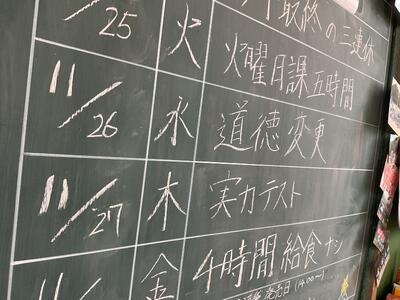 最終の三連休
25 火 火曜日課五時間
11/26 水 道徳変更
11/27 木 実力テスト
11/ 金 4時間 給食ナシ
発売日(14:00~)